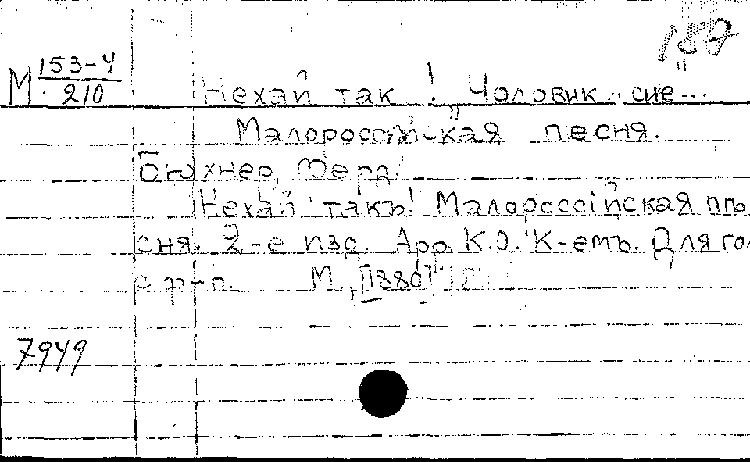 187
М 153-4/210 Нехай так! "Чоловик сие"...
Малороссий-кая песня.
Бюхнер, Ферд.
Нехай такъ! Малороссійская пѣ
сня. 2-е изд. Арр. К.О. К-емъ. Для го
с. ф-п. М, [1880]
7949